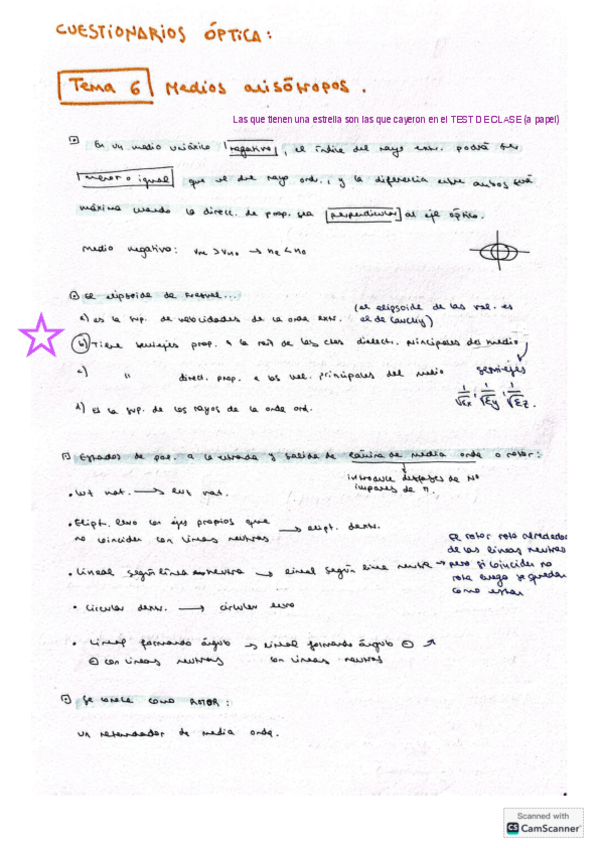 CUESTIONARIOS ÓPTICA:
Tema 6 Medios anisótropos.
Las que tienen una estrella son las que cayeron en el TEST DE CLASE (a papel)
En un medio uniáxico negativo, el índice del rayo extr. podrá ser
menor o igual que el del rayo ord., y la diferencia entre ambos será
máxima cuando la direcc. de prop. sea perpendicular al eje óptico.
medio negativo: vne > vno → ne < no
El elipsoide de Fresnel...
(el elipsoide de las vel. es
el de Cauchy)
a) es la sup. de velocidades de la onda extr.
b) Tiene semiejes prop. a la raíz de las ctes dieléct. principales del medio
semiejes
c) " direct. prop. a las vel. principales del medio
1/√εx ; 1/√εy ; 1/√εz.
d) Es la sup. de los rayos de la onda ord.
Estados de pol. a la entrada y salida de lámina de media onda o rotor:
introduce desfases de Nº
impares de π.
• luz nat. → luz nat.
• Elípt. levo con ejes propios que
no coinciden con líneas neutras → elípt. dextr.
El rotor rota alrededor
de las líneas neutras
pero si coinciden no
rota luego se quedan
como están
• Lineal según línea neutra → lineal según línea neutra →
• Circular dextr. → circular levo
• Lineal formando ángulo → lineal formando ángulo
con líneas neutras con líneas neutras
Se conoce como ROTOR:
Un retardador de media onda.
Scanned with
CS CamScanner